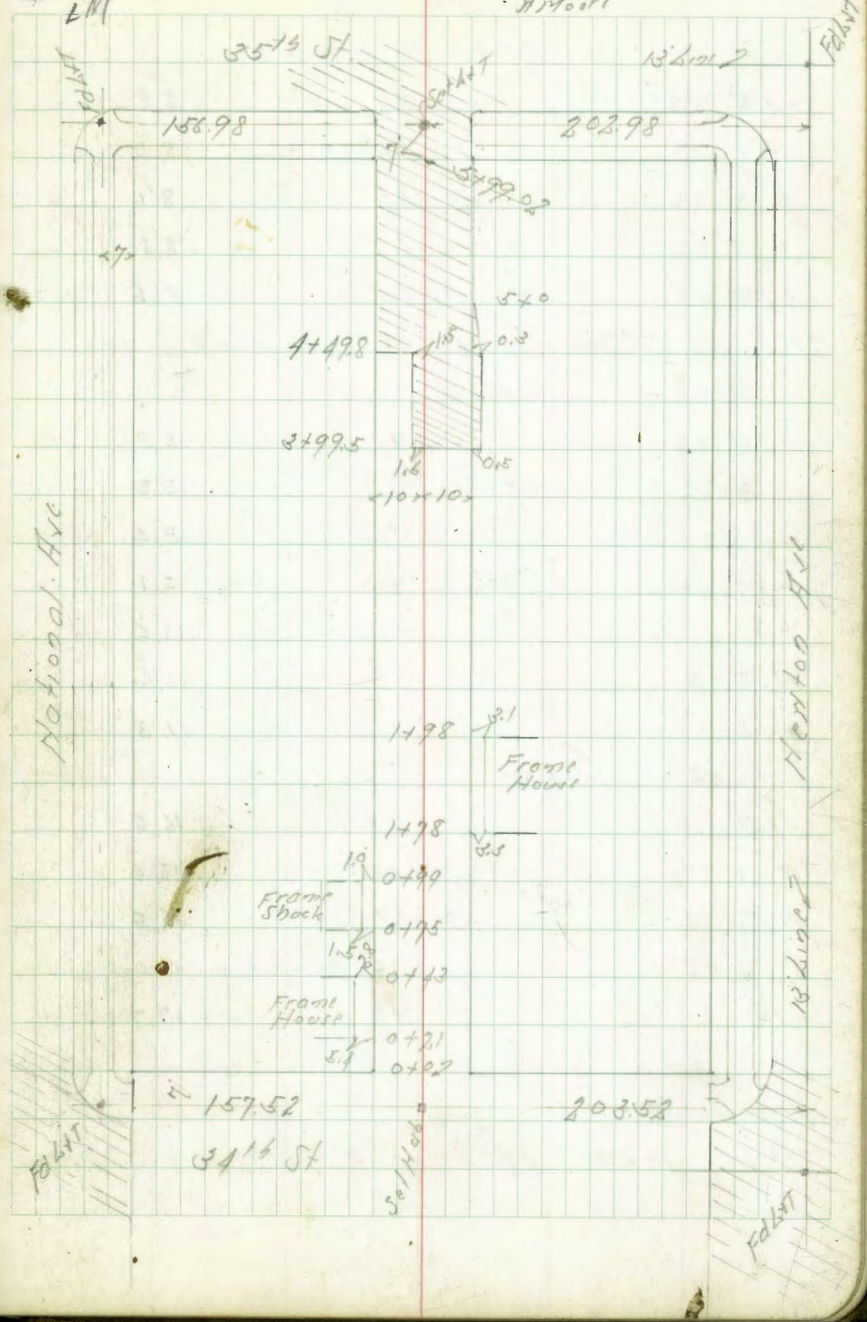 LM
A Moore
35th St.
13' Line?
Fd L+T
Fd L+T
Set L+T
156.98
202.98
7
5+99.02
<7>
5+0
4+49.8
1.5
0.3
3+99.5
1.6
0.5
<10×10>
National Ave
Newton Ave
1+98
3.1
Frame
House
1+78
3.3
1.9
0+99
Frame
Shack
0+75
1.5
0+43
Frame
House
0+21
5.4
0+02
13' Line?
7
157.52
203.52
34th St
Set Hub
Fd L+T
Fd L+T